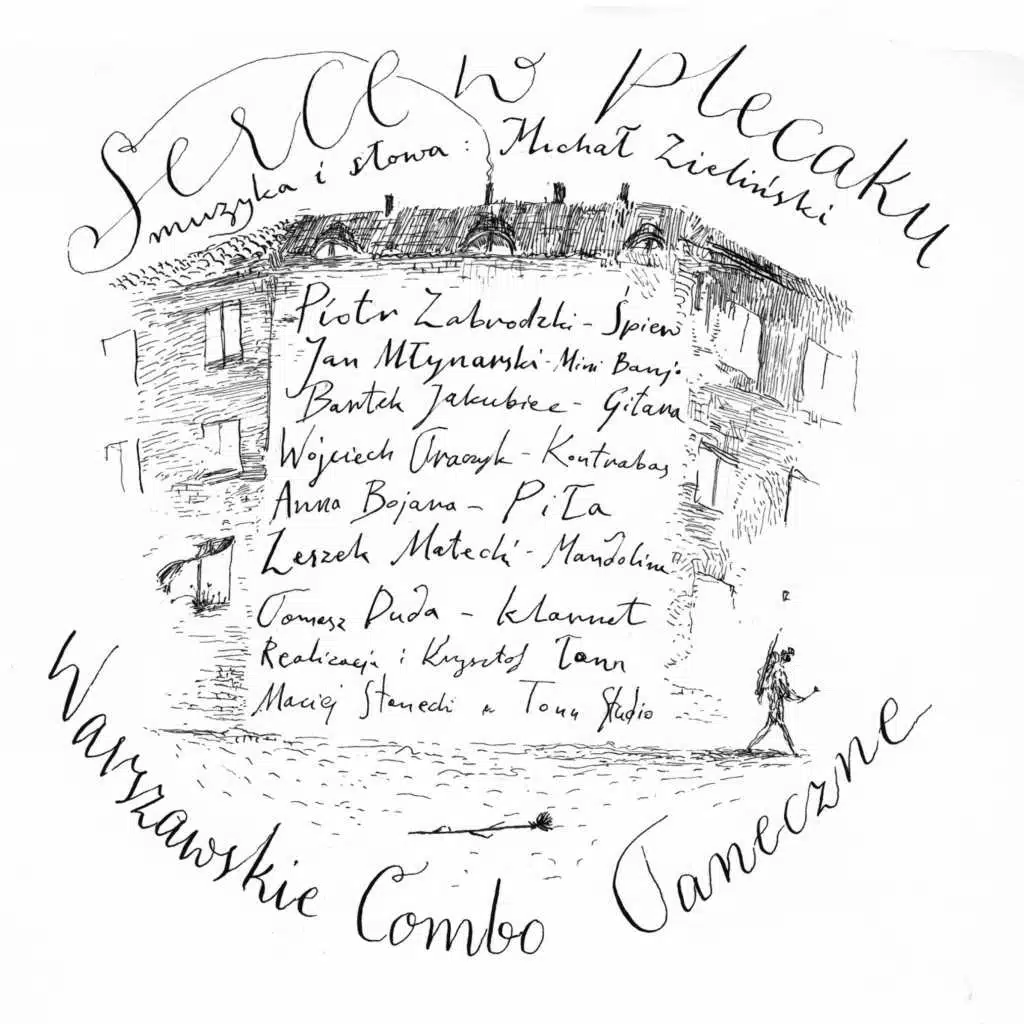 Serce w plecaku
muzyka i słowa: Michał Zieliński
Piotr Zabrodzki - Śpiew
Jan Młynarski - Mini Banjo
Bartek Jakubiec - Gitara
Wojciech Traczyk - Kontrabas
Anna Bojara - Piła
Leszek Małecki - Mandolina
Tomasz Duda - klarnet
Realizacja: Krzysztof Tonn
Maciej Stanecki w Tonn Studio
Warszawskie Combo Taneczne